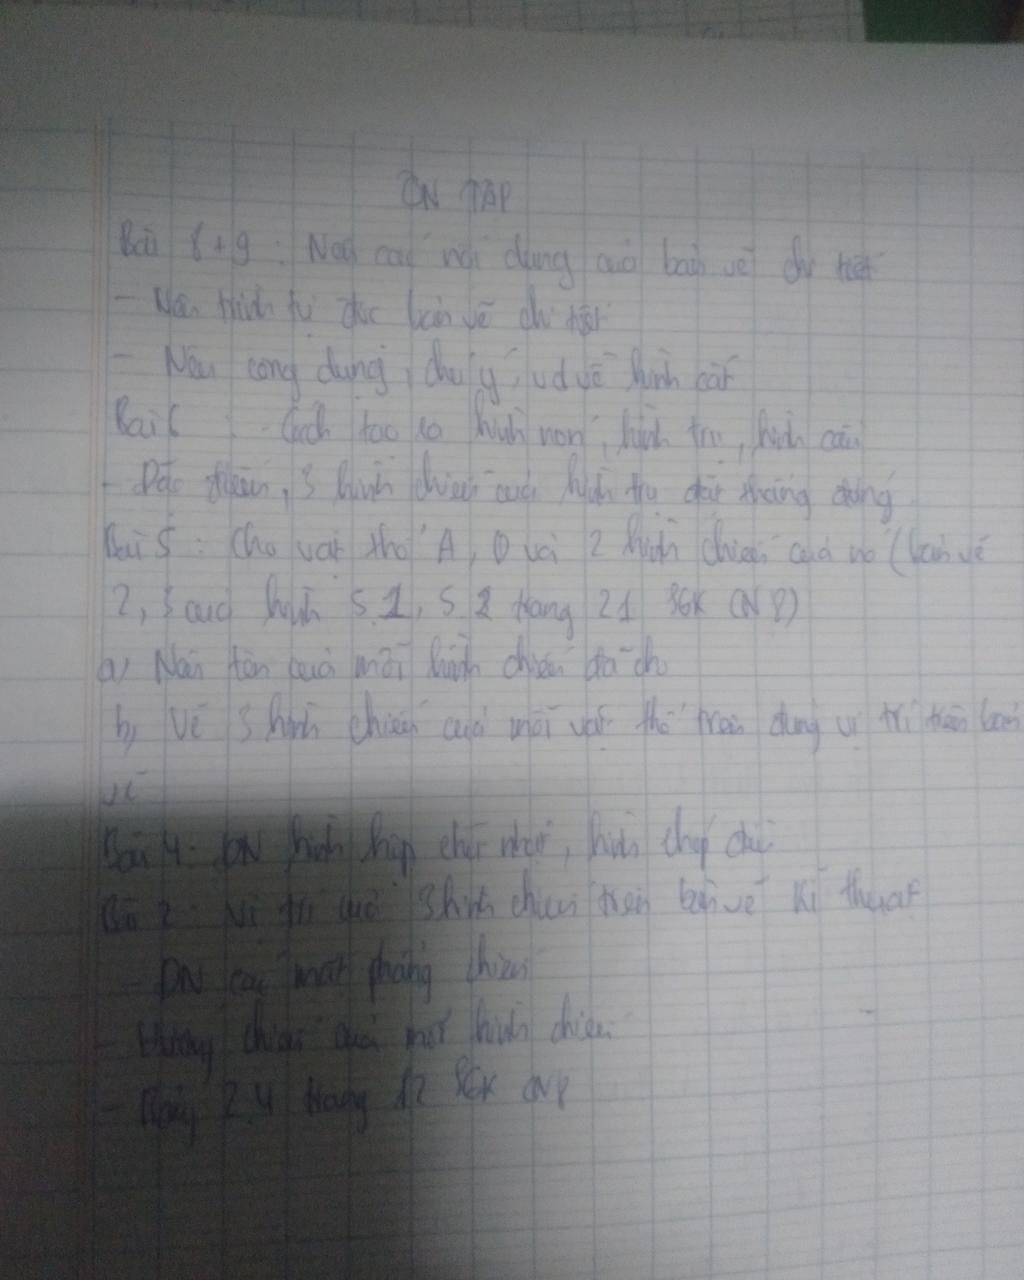 ÔN TẬP
Bài 8+9: Nêu các nội dung của bản vẽ chi tiết
- Nêu trình tự đọc bản vẽ chi tiết
- Nêu công dụng, chú ý, vd về hình cắt
Bài 6: Cách tạo ra hình nón, hình trụ, hình cầu
- Đặc điểm, 3 hình chiếu của hình trụ đặt thẳng đứng
Bài 5: Cho vật thể A, D và 2 hình chiếu của nó (bản vẽ
2, 3 của hình 5.1, 5.2 trang 21 SGK CN 8)
a) Nêu tên của mỗi hình chiếu đã cho
b) Vẽ 3 hình chiếu của mỗi vật thể trên đúng vị trí trên bản
vẽ
Bài 4: ĐN hình hộp chữ nhật, hình chóp đều
Bài 2: Vị trí của 3 hình chiếu trên bản vẽ kĩ thuật
- ĐN các mặt phẳng chiếu
- Hướng chiếu của mỗi hình chiếu
- 2.4 trang 12 SGK CN8